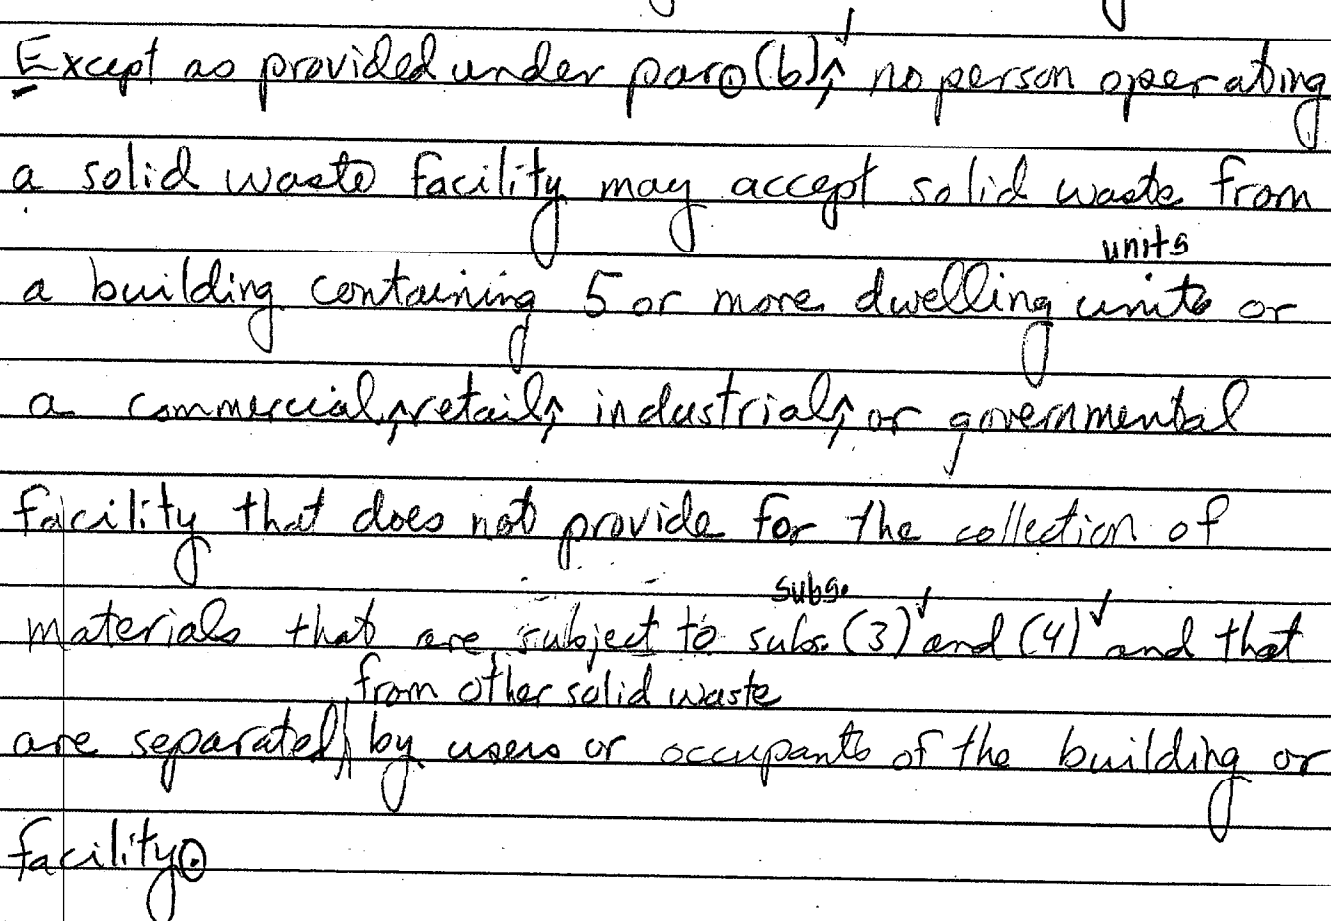 Except as provided under par. (b), no person operating
a solid waste facility may accept solid waste from
units
a building containing 5 or more dwelling units or
a commercial, retail, industrial, or governmental
facility that does not provide for the collection of
subs.
materials that are subject to subs. (3) and (4) and that
from other solid waste
are separated by users or occupants of the building or
facility.